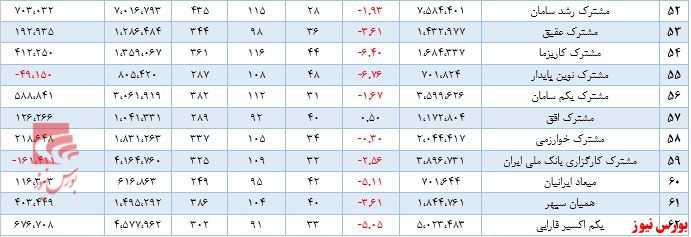 ۵۲ مشترک رشد سامان ۷,۵۸۴,۴۰۱ -۱.۹۳ ۲۸ ۱۱۵ ۴۳۵ ۷,۰۱۶,۷۹۳ ۷۰۳,۰۳۲
۵۳ مشترک عقیق ۱,۴۳۲,۹۷۷ -۳.۶۱ ۳۶ ۹۸ ۳۴۴ ۱,۲۸۶,۴۸۴ ۱۹۲,۹۳۵
۵۴ مشترک کاریزما ۱,۶۸۴,۳۳۷ -۶.۴۰ ۴۴ ۱۱۶ ۳۶۱ ۱,۳۵۹,۰۶۷ ۴۱۲,۲۵۰
۵۵ مشترک نوین پایدار ۷۰۱,۸۲۴ -۶.۷۶ ۴۸ ۱۰۸ ۲۸۷ ۸۰۵,۴۲۰ -۴۹,۱۵۰
۵۶ مشترک یکم سامان ۳,۵۹۹,۶۲۶ -۱.۶۷ ۳۱ ۱۱۲ ۳۸۲ ۳,۰۶۱,۹۱۹ ۵۸۸,۸۴۱
۵۷ مشترک افق ۱,۱۷۲,۸۰۴ ۰.۵۰ ۴۰ ۹۲ ۲۸۹ ۱,۰۴۱,۳۳۱ ۱۲۶,۲۶۶
۵۸ مشترک خوارزمی ۲,۰۴۴,۴۱۷ -۰.۳۰ ۳۴ ۱۰۵ ۳۳۷ ۱,۸۳۱,۲۶۳ ۲۱۸,۶۴۸
۵۹ مشترک کارگزاری بانک ملی ایران ۳,۸۹۶,۷۳۱ -۲.۵۶ ۳۲ ۱۰۹ ۳۲۵ ۴,۱۶۴,۷۶۰ -۱۶۱,۴۱۱
۶۰ میعاد ایرانیان ۷۰۱,۶۴۴ -۵.۱۱ ۴۲ ۹۵ ۲۴۹ ۶۱۶,۸۶۳ ۱۱۶,۳۰۳
۶۱ همیان سپهر ۱,۸۴۴,۷۶۱ -۳.۶۱ ۴۰ ۱۰۴ ۳۸۶ ۱,۴۹۵,۲۹۲ ۴۰۳,۴۴۹
۶۲ یکم اکسیر فارابی ۵,۰۲۳,۴۸۳ -۵.۰۵ ۳۳ ۹۱ ۳۰۲ ۴,۵۷۷,۹۶۲ ۶۷۶,۷۰۸
بورس نیوز
بورس نیوز